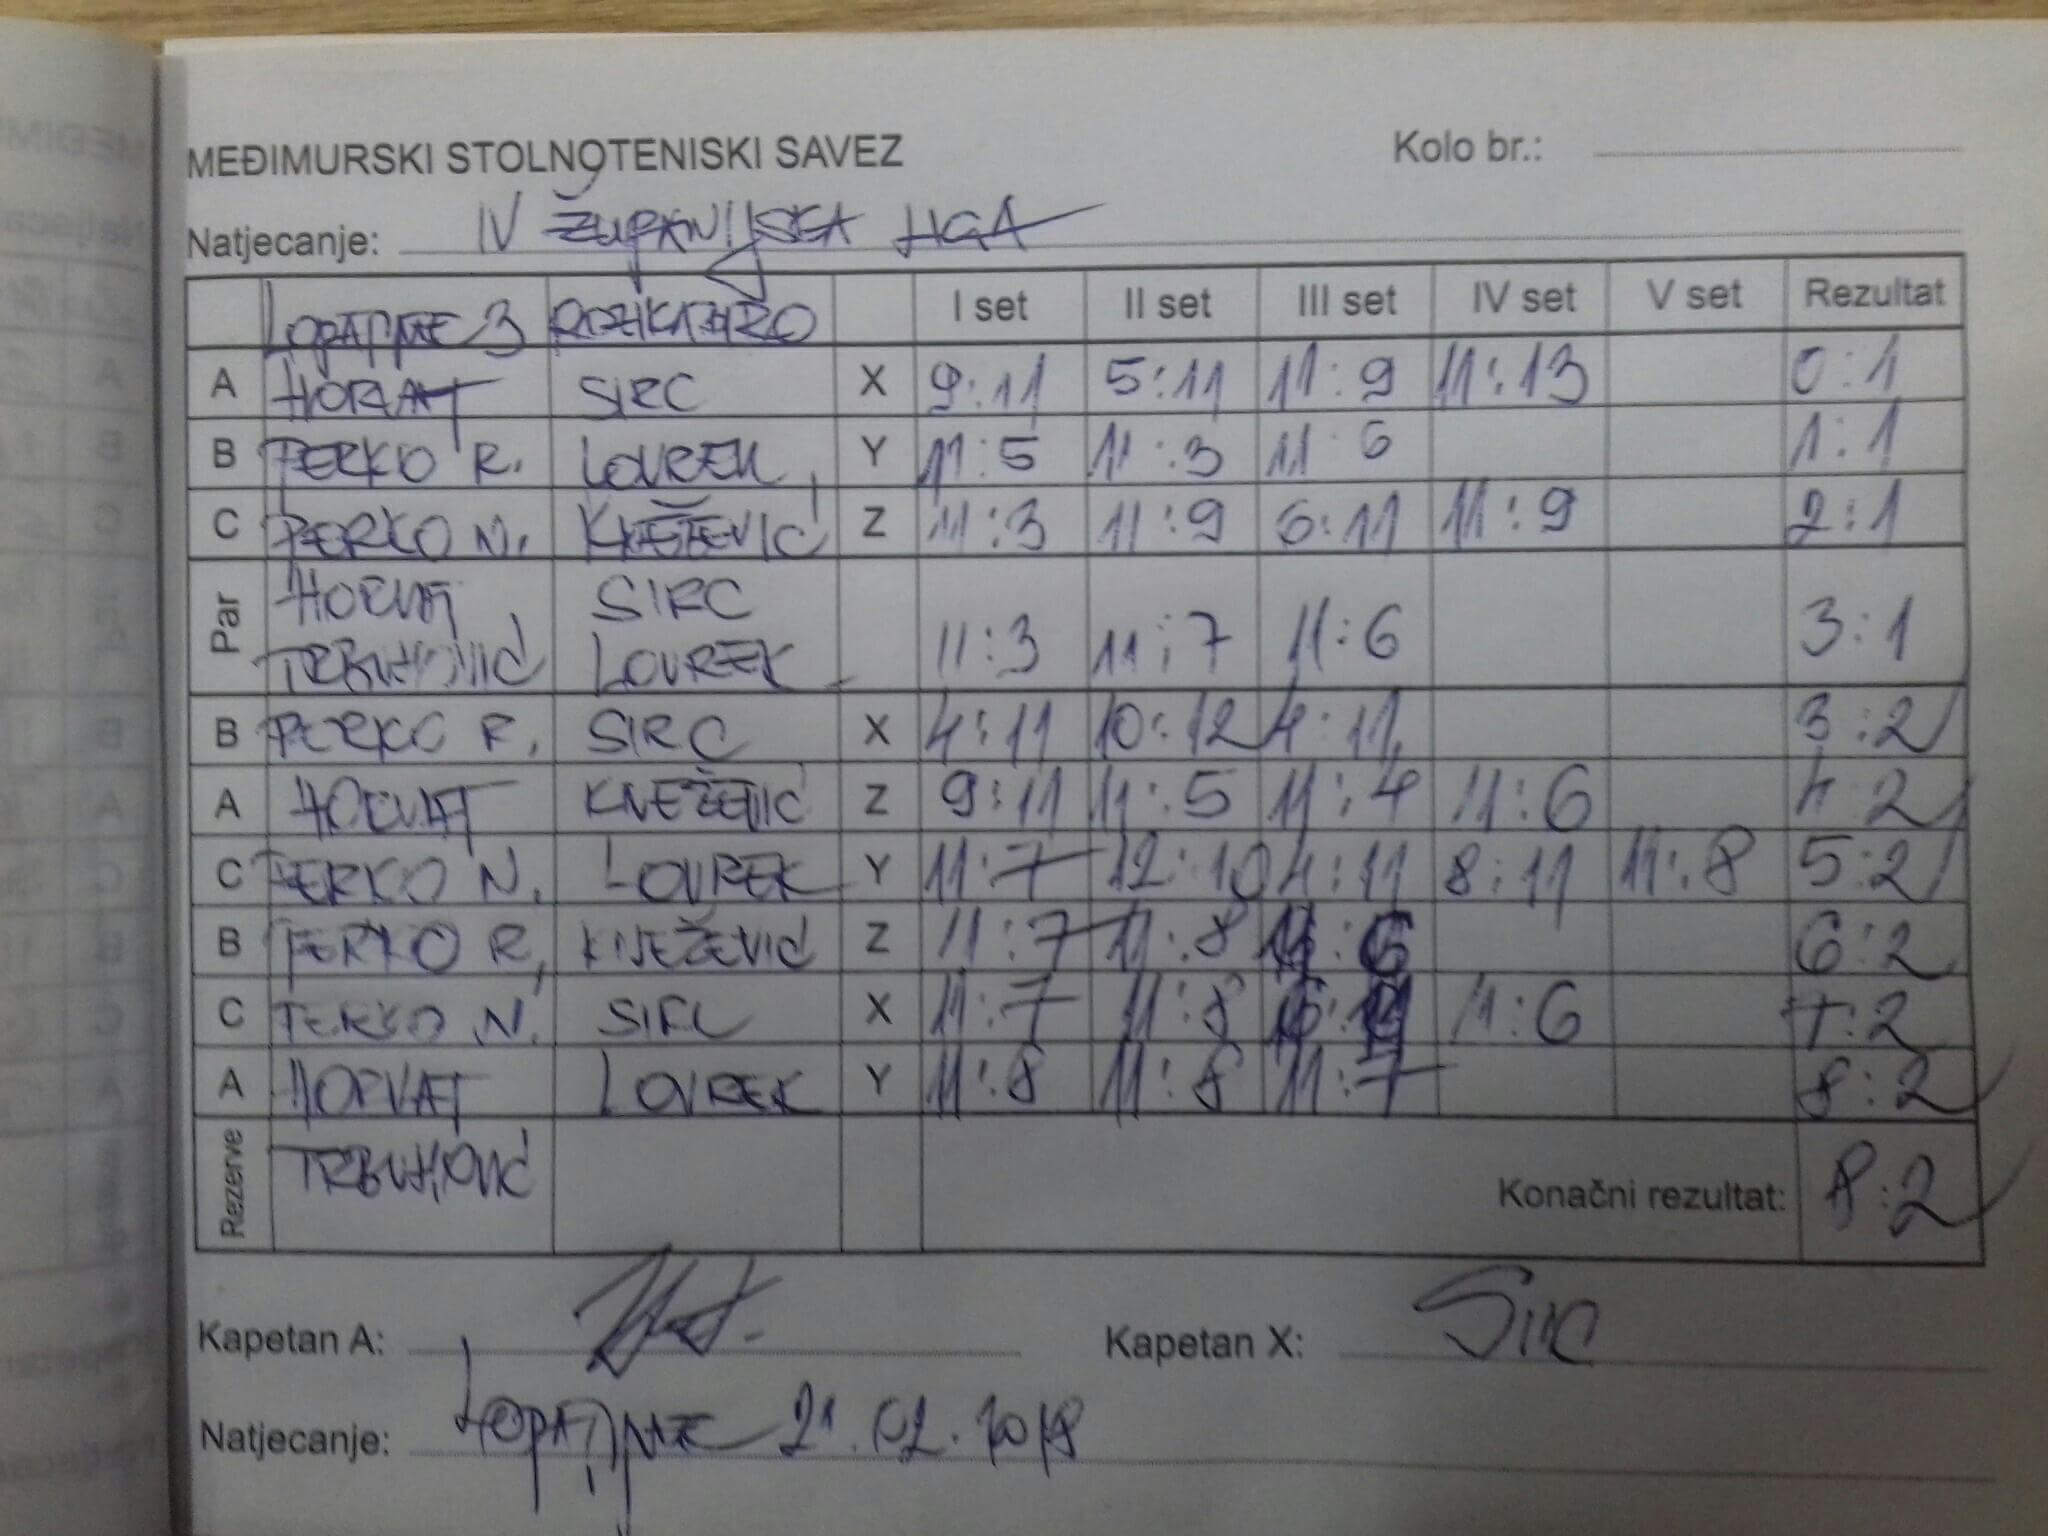 MEĐIMURSKI STOLNOTENISKI SAVEZ Kolo br.:
Natjecanje: IV ŽUPANIJSKA LIGA
LOPATINEC 3 I set II set III set IV set V set Rezultat
A HORVAT SIRC X 9:11 5:11 11:9 11:13 0:1
B PERKO R. LOVREK Y 11:5 11:3 11:6 1:1
C PERKO N. KNEŽEVIĆ Z 11:3 11:9 6:11 11:9 2:1
Par HORVAT SIRC
TRBUHOVIĆ LOVREK 11:3 11:7 11:6 3:1
B PERKO R. SIRC X 4:11 10:12 4:11 3:2
A HORVAT KNEŽEVIĆ Z 9:11 11:5 11:4 11:6 4:2
C PERKO N. LOVREK Y 11:7 12:10 4:11 8:11 11:8 5:2
B PERKO R. KNEŽEVIĆ Z 11:7 11:8 11:6 6:2
C PERKO N. SIRC X 11:7 11:8 11:6 7:2
A HORVAT LOVREK Y 11:8 11:8 11:7 8:2
Rezerve TRBUHOVIĆ
Konačni rezultat: 8:2
Kapetan A: Kapetan X: Sirc
Natjecanje: LOPATINEC 21.02.2018